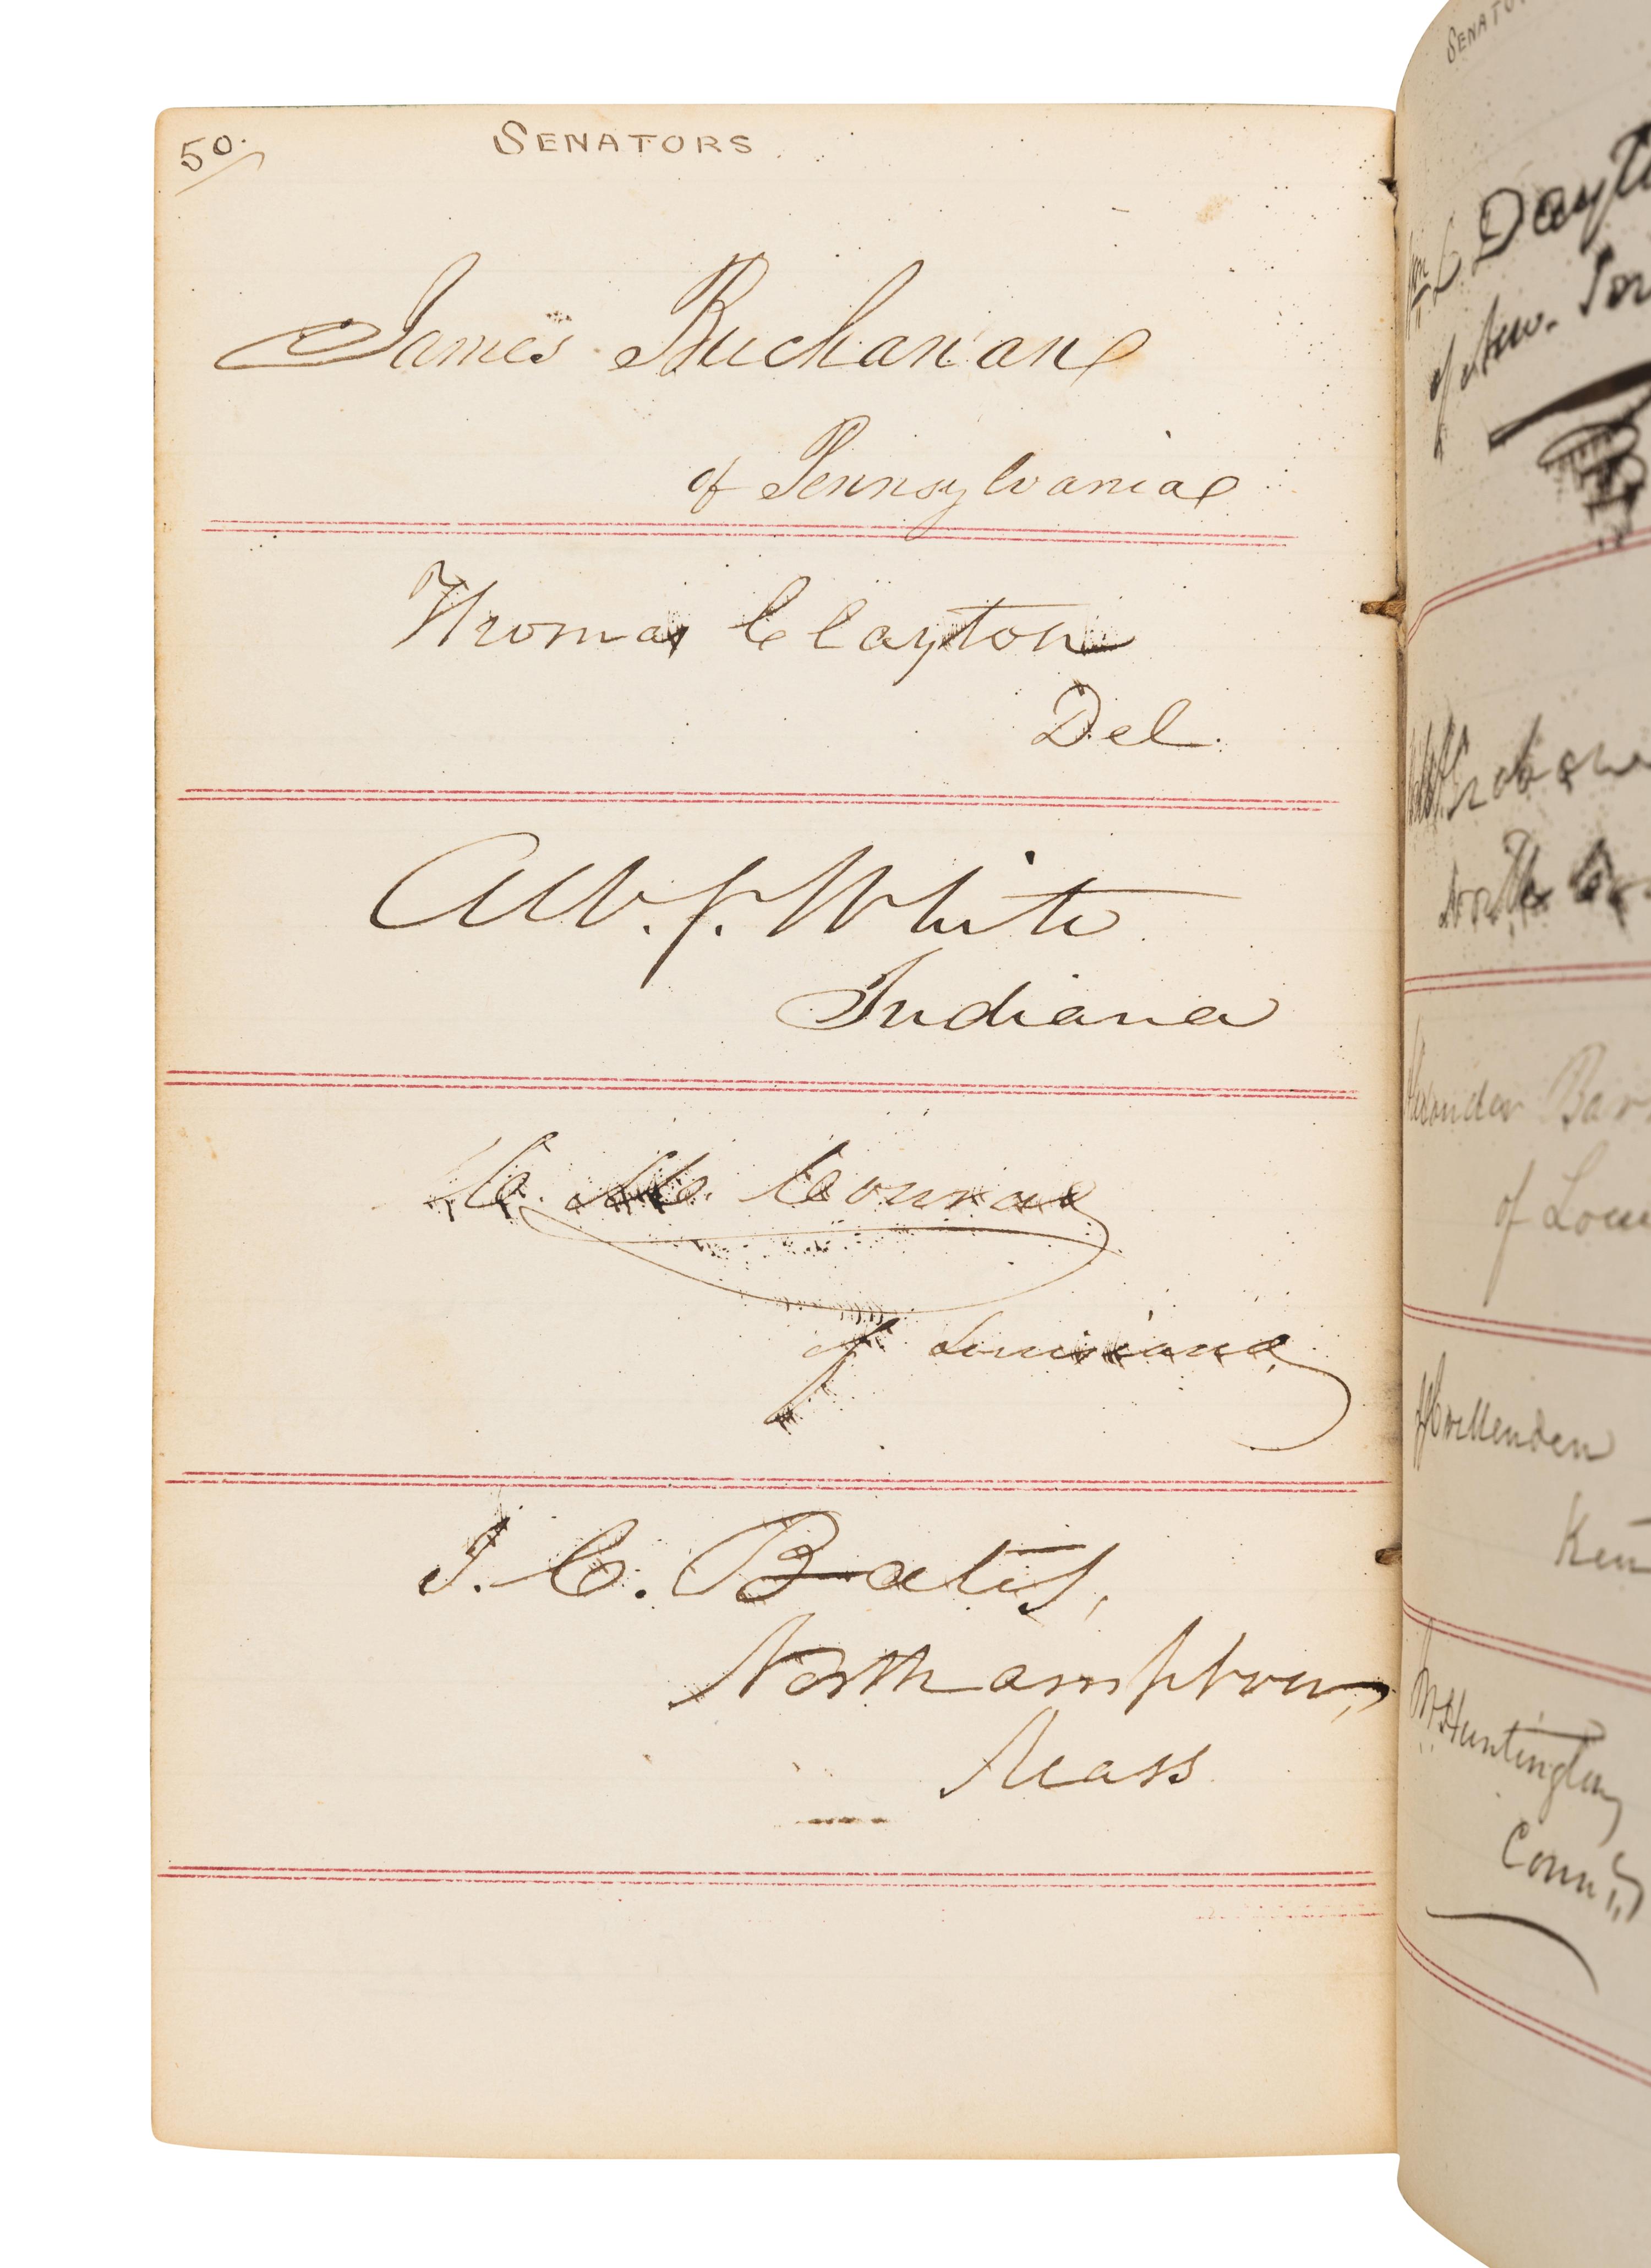 50.
SENATORS
James Buchanan
of Pennsylvania
Thomas Clayton
Del.
Alb. S. White
Indiana
C. M. Conrad
of Louisiana
I. C. Bates,
Northampton,
Mass
SENATO
Wm L. Dayt
of New
North
Alexander Bar
of Loui
JJ Crittenden
Ken
Huntington
Conn